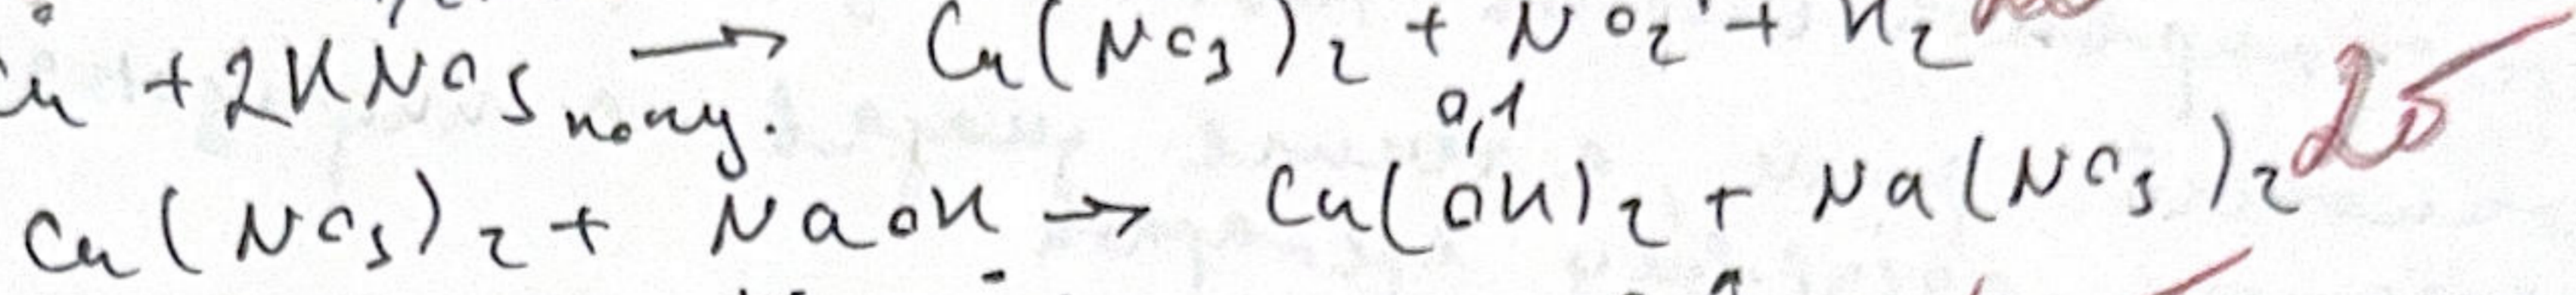 Cu + 2HNO3 конц. → Cu(NO3)2 + NO2 + H2
0,1
Cu(NO3)2 + NaOH → Cu(OH)2 + Na(NO3)2 2б